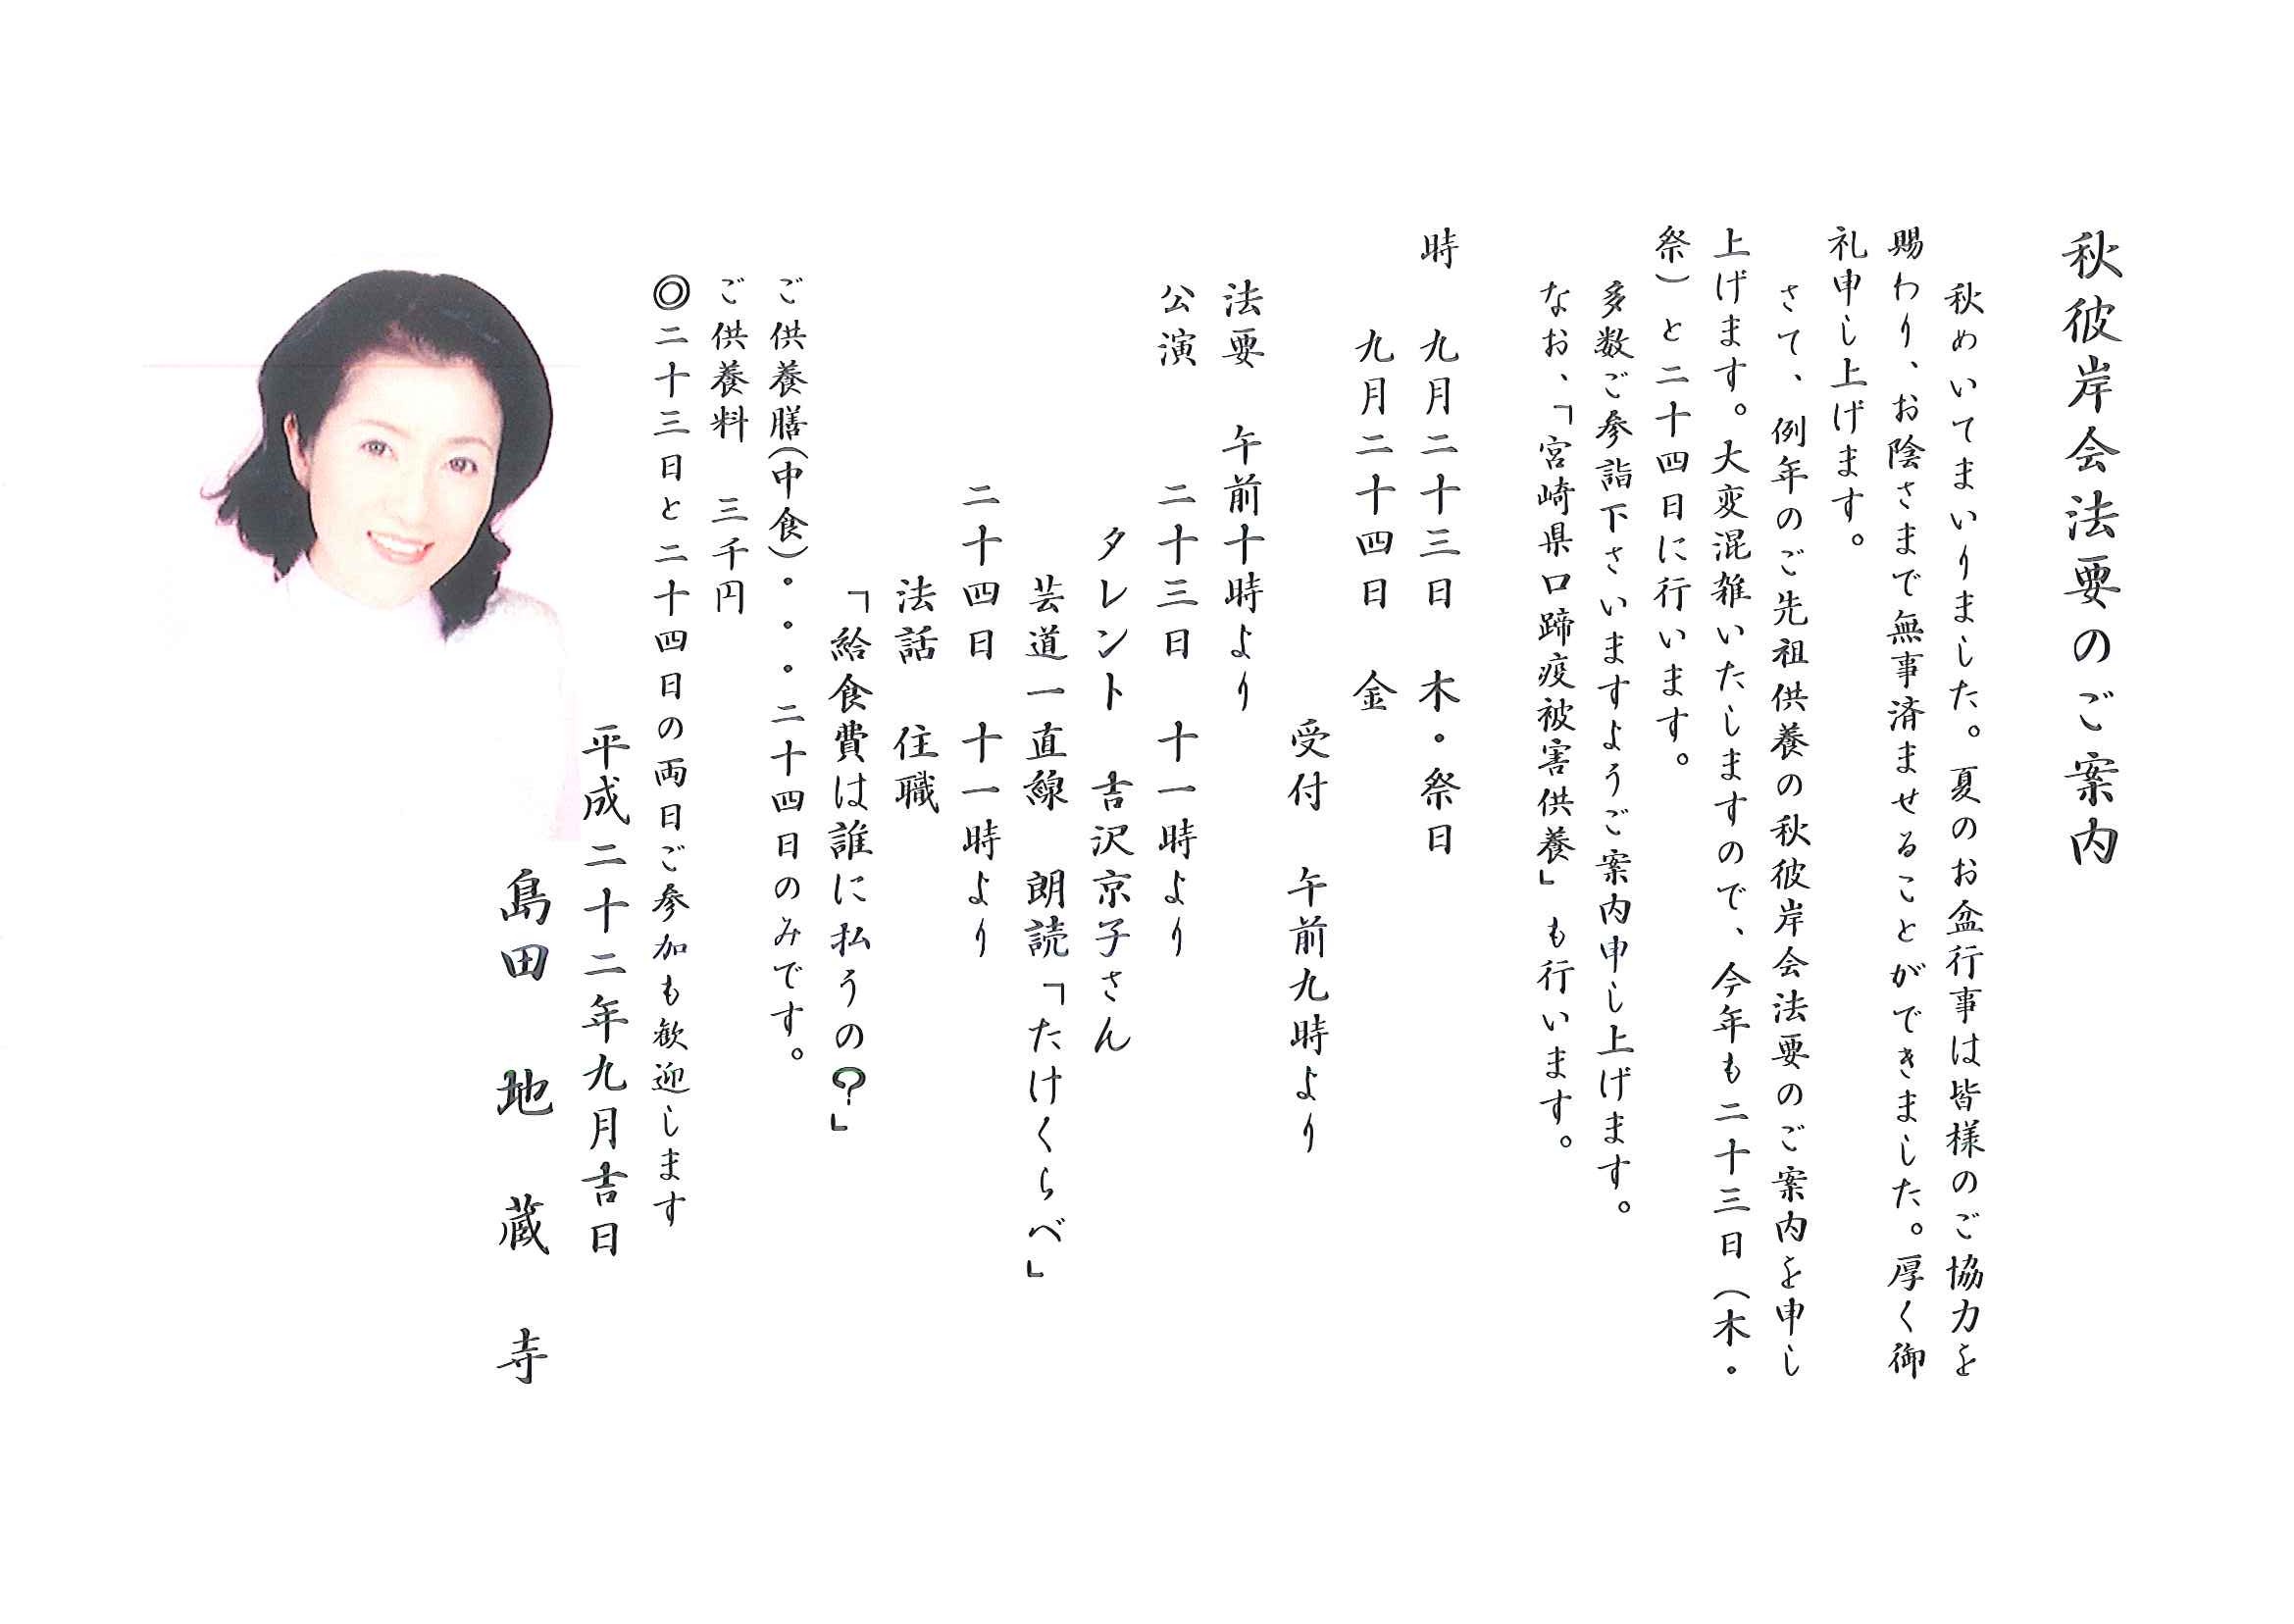 秋彼岸会法要のご案内
秋めいてまいりました。夏のお盆行事は皆様のご協力を
賜わり、お陰さまで無事済ませることができました。厚く御
礼申し上げます。
さて、例年のご先祖供養の秋彼岸会法要のご案内を申し
上げます。大変混雑いたしますので、今年も二十三日(木・
祭)と二十四日に行います。
多数ご参詣下さいますようご案内申し上げます。
なお、「宮崎県口蹄疫被害供養」も行います。
時 九月二十三日 木・祭日
九月二十四日 金
受付 午前九時より
法要 午前十時より
公演 二十三日 十一時より
タレント 吉沢京子さん
芸道一直線 朗読「たけくらべ」
二十四日 十一時より
法話 住職
「給食費は誰に払うの?」
ご供養膳(中食)・・・二十四日のみです。
ご供養料 三千円
◎二十三日と二十四日の両日ご参加も歓迎します
平成二十二年九月吉日
島田 地蔵寺